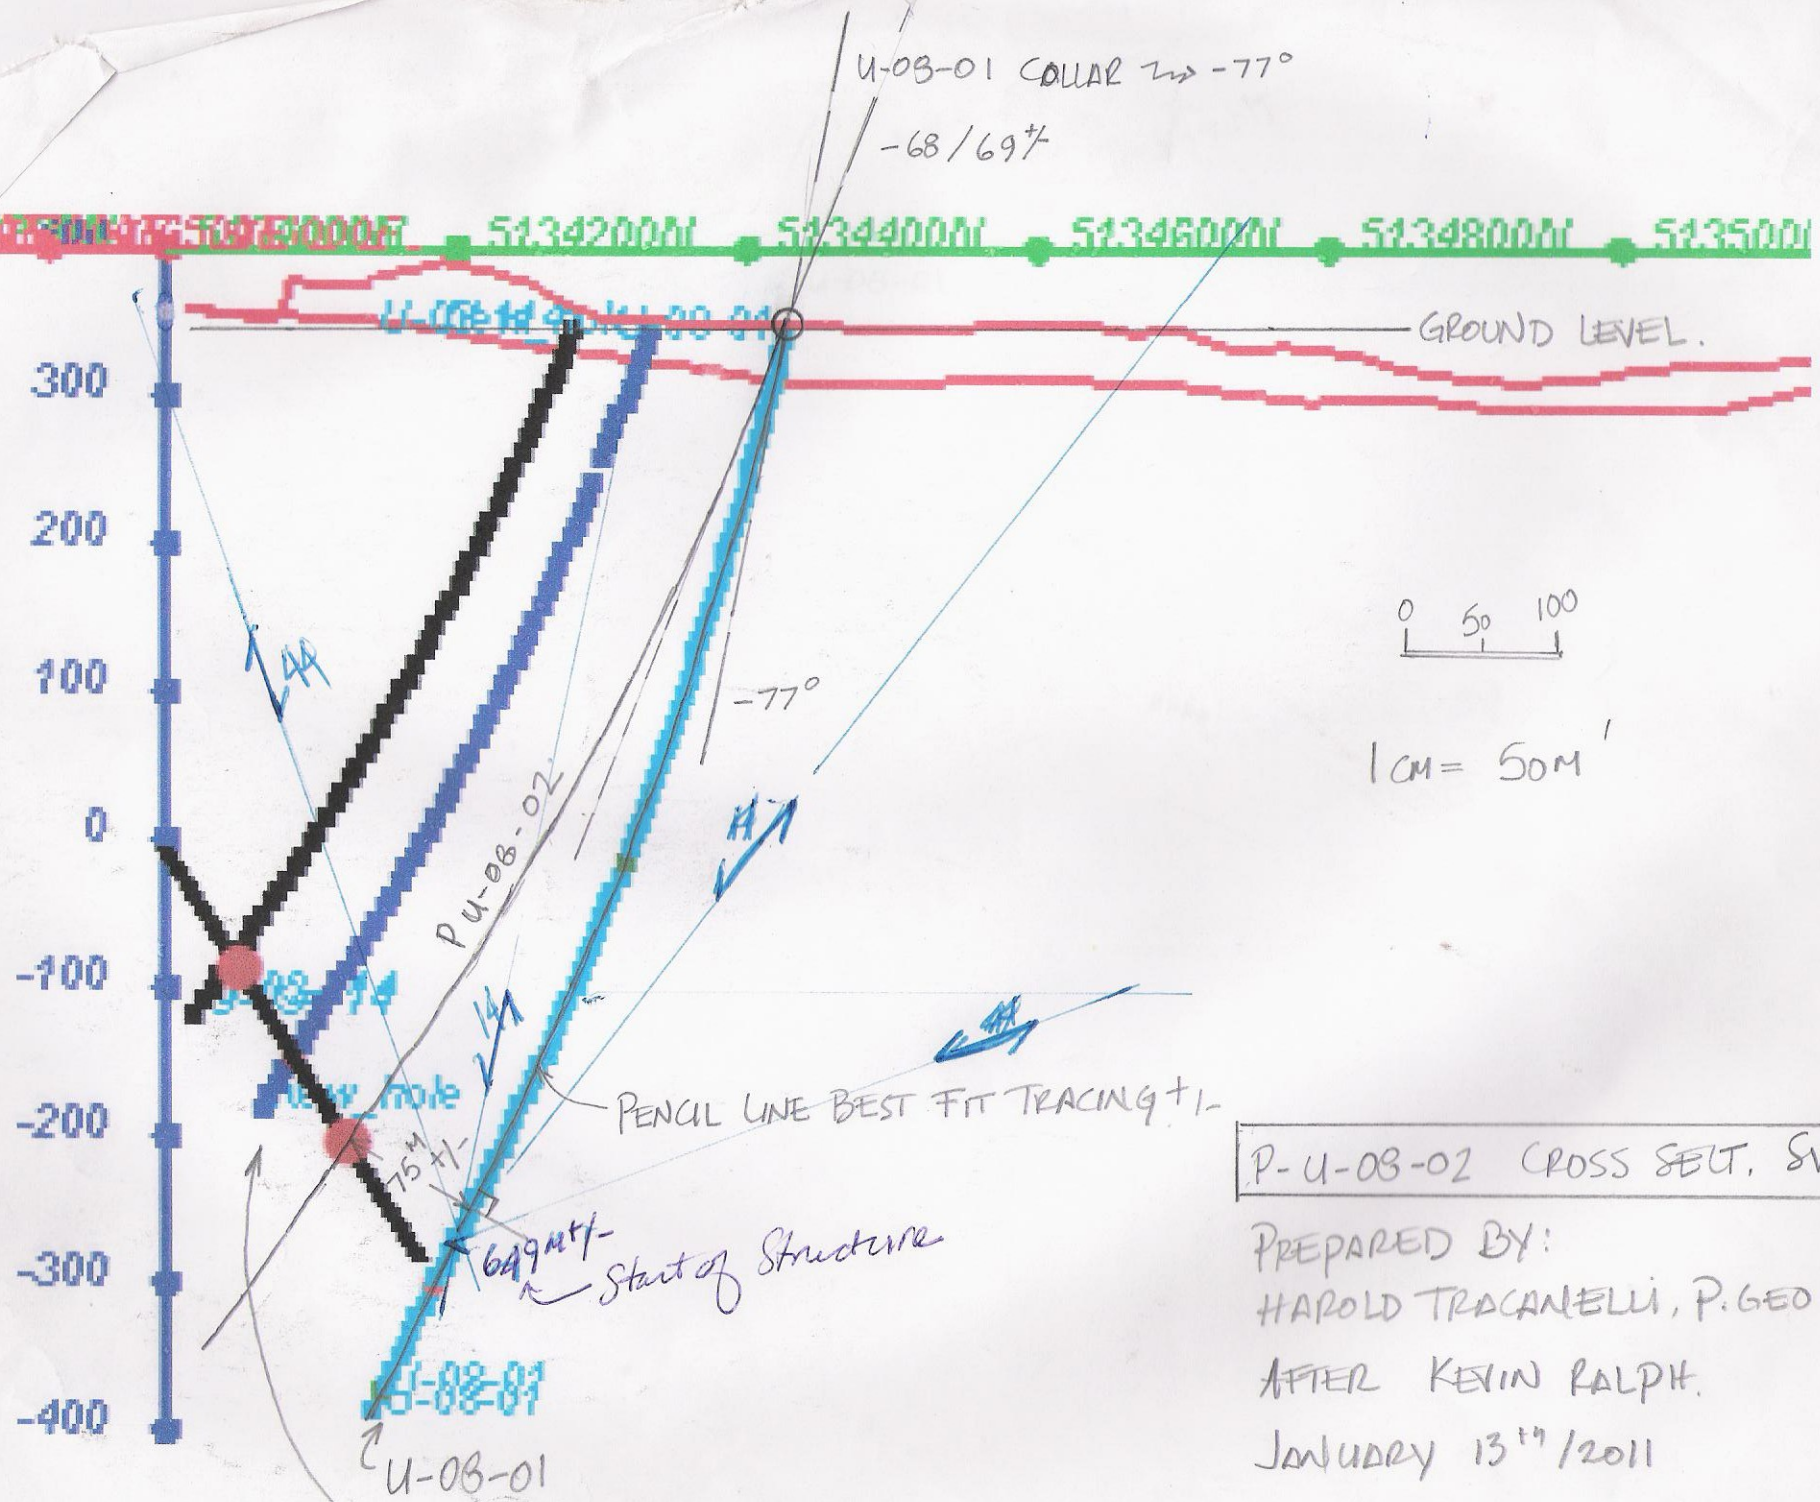 U-08-01 COLLAR → -77°
-68/69 +/-
5134200N
5134400N
5134600N
5134800N
GROUND LEVEL.
300
200
100
0
-100
-200
-300
-400
0 50 100
1 CM = 50M'
44
-77°
P U-08-02
PENCIL LINE BEST FIT TRACING +/-
new_hole
75M +/-
649M +/-
Start of Structure
U-08-01
U-08-01
P-U-08-02 CROSS SECT.
PREPARED BY:
HAROLD TRACANELLI, P.GEO
AFTER KEVIN RALPH.
JANUARY 13TH/2011